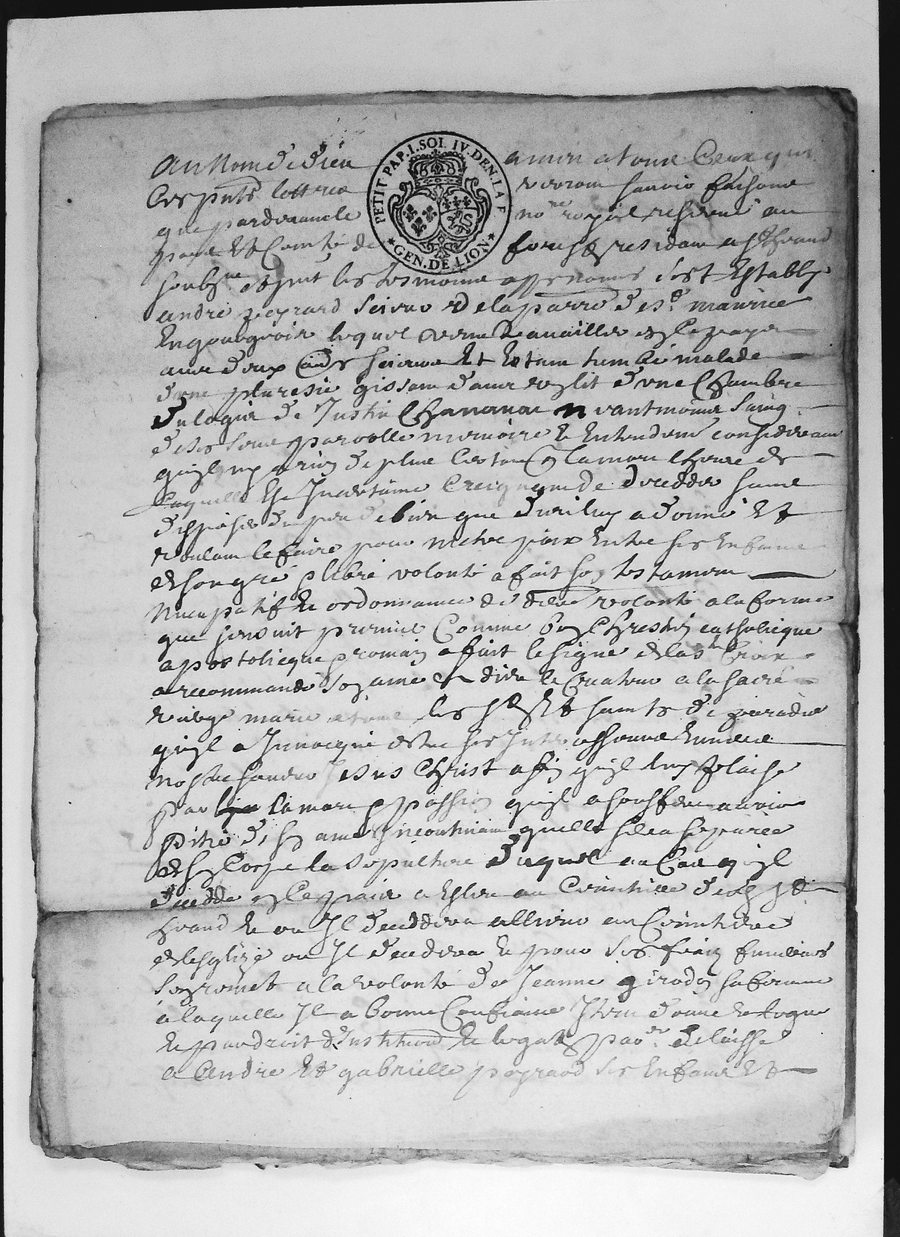 PETIT PAP. I. SOL IV. DEN. LA F
GEN. DE LION
Au Nom de Dieu amen a tous Ceux qui
Ces pntes lettres verront scavoir faisons
que pardevant le no.re royal
pays & Comté de forest residant a
soubsne et pnt les tesmoins appres nommes s'est Estably
andré peyrard scieur de la parre de st maurice
En gourgois lequel venu travailler en ce pays
avec deux scieurs Et Estant tumbé malade
d'une pluresie gissant dans un lit d'une Chambre
du logis de Justin neantmoins saing
de ses sens parolle memoire & Entendemt considerant
qu'il ny a rien de plus certain que la mort lheure de
laquelle Est Incertaine Creignant de decedder sans
disposer du peu de bien que dieu luy a donné Et
voulant le faire pour mettre paix Entre ses Enfans
de son gré & libre volonté a fait son testament
Nuncupatif & ordonnance de dre volonté a la forme
que sensuit premier Comme bon Chrestien catholicque
apostolicque & romain a fait le signe de la ste Croix
a recommandé son ame a dieu le Createur a la sacrée
vierge marie et tous les sts & saints de paradis
qu'il a Invocqué estre ses Intercesseurs Envers
nostre seigneur Jesus Christ affin qu'il luy plaise
par la mort & passion qu'il a souffert avoir
pitié de son ame Incontinant quelle sera separée
de son Corps la sepulture duquel au Cas qu'il
decedde en ce pais a Eslue au Cimitiere de
& ou Il deceddera allieurs au Cimitiere
de l'esglize ou Il deceddera & pour ses frais funeraires
s'en romet a la volonté de Jeanne girodon sa femme
a laquelle Il a bonne Confiance Item donne & legue
& par droit d'Institution & legat delaisse
a André Et gabrielle peyrard ses Enfans Et